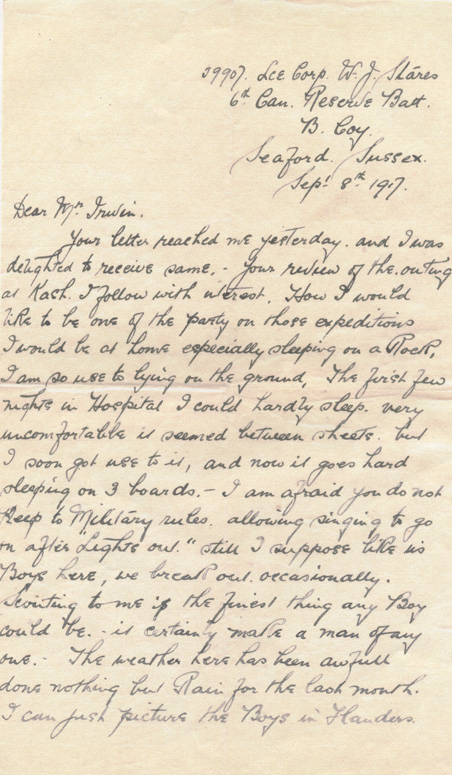 39907. Lce Corp. W. J. Shares
6th Can. Reserve Batt.
B. Coy.
Seaford. Sussex.
Sept 8th 1917.
Dear Mrs Irwin.
Your letter reached me yesterday. and I was
delighted to receive same. - Your review of the outing
at Kash. I follow with interest. How I would
like to be one of the party on those expeditions
I would be at home especially sleeping on a Rock,
I am so use to lying on the ground, The first few
nights in Hospital I could hardly sleep. very
uncomfortable it seemed between sheets. but
I soon got use to it, and now it goes hard
sleeping on 3 boards. - I am afraid you do not
keep to Military rules. allowing singing to go
on after "Lights out." still I suppose like us
Boys here, we break out occasionally.
Scouting to me is the finest thing any Boy
could be. - it certainly make a man of any
one. - The weather here has been awfull
done nothing but Rain for the last month.
I can just picture the Boys in Flanders.